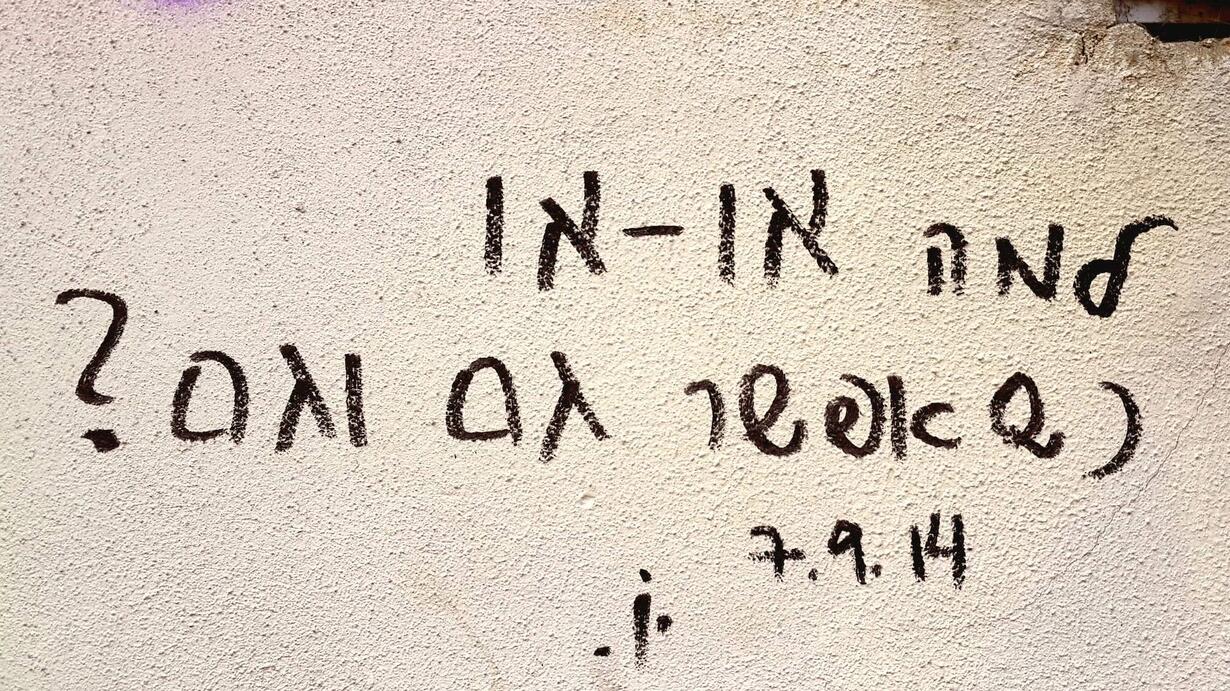 למה או-או
כשאפשר גם וגם?
7.9.14